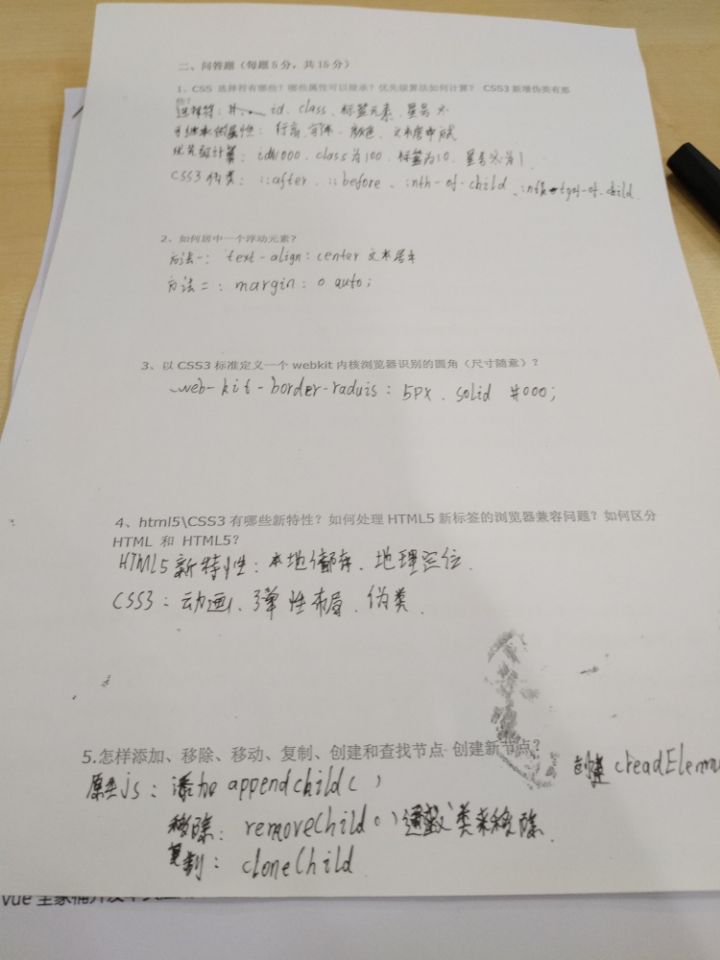 二、问答题（每题5分，共15分）
1、CSS 选择符有哪些？哪些属性可以继承？优先级算法如何计算？ CSS3新增伪类有那些？
选择符： id、class、标签元素、星号
可继承的属性：行高、字体、颜色、文本居中
优先级计算：id为1000、class为100、标签为10、星号 为1
CSS3伪类：::after、::before、:nth-of-child、
2、如何居中一个浮动元素？
方法一：text-align:center 文本居中
方法二：margin：0 auto；
3、以CSS3标准定义一个webkit内核浏览器识别的圆角（尺寸随意）？
-web-kit-border-raduis：5px、solid #000；
4、html5\CSS3有哪些新特性？如何处理HTML5新标签的浏览器兼容问题？如何区分
HTML 和 HTML5？
HTML5新特性：本地储存、地理定位、
CSS3：动画、弹性布局、伪类、
5.怎样添加、移除、移动、复制、创建和查找节点 创建新节点？
创建 creadElem
原生js：添加 appendchild（ ）
移除：removeChild（）通过 类来移除
复制：cloneChild
vue 全家桶开发